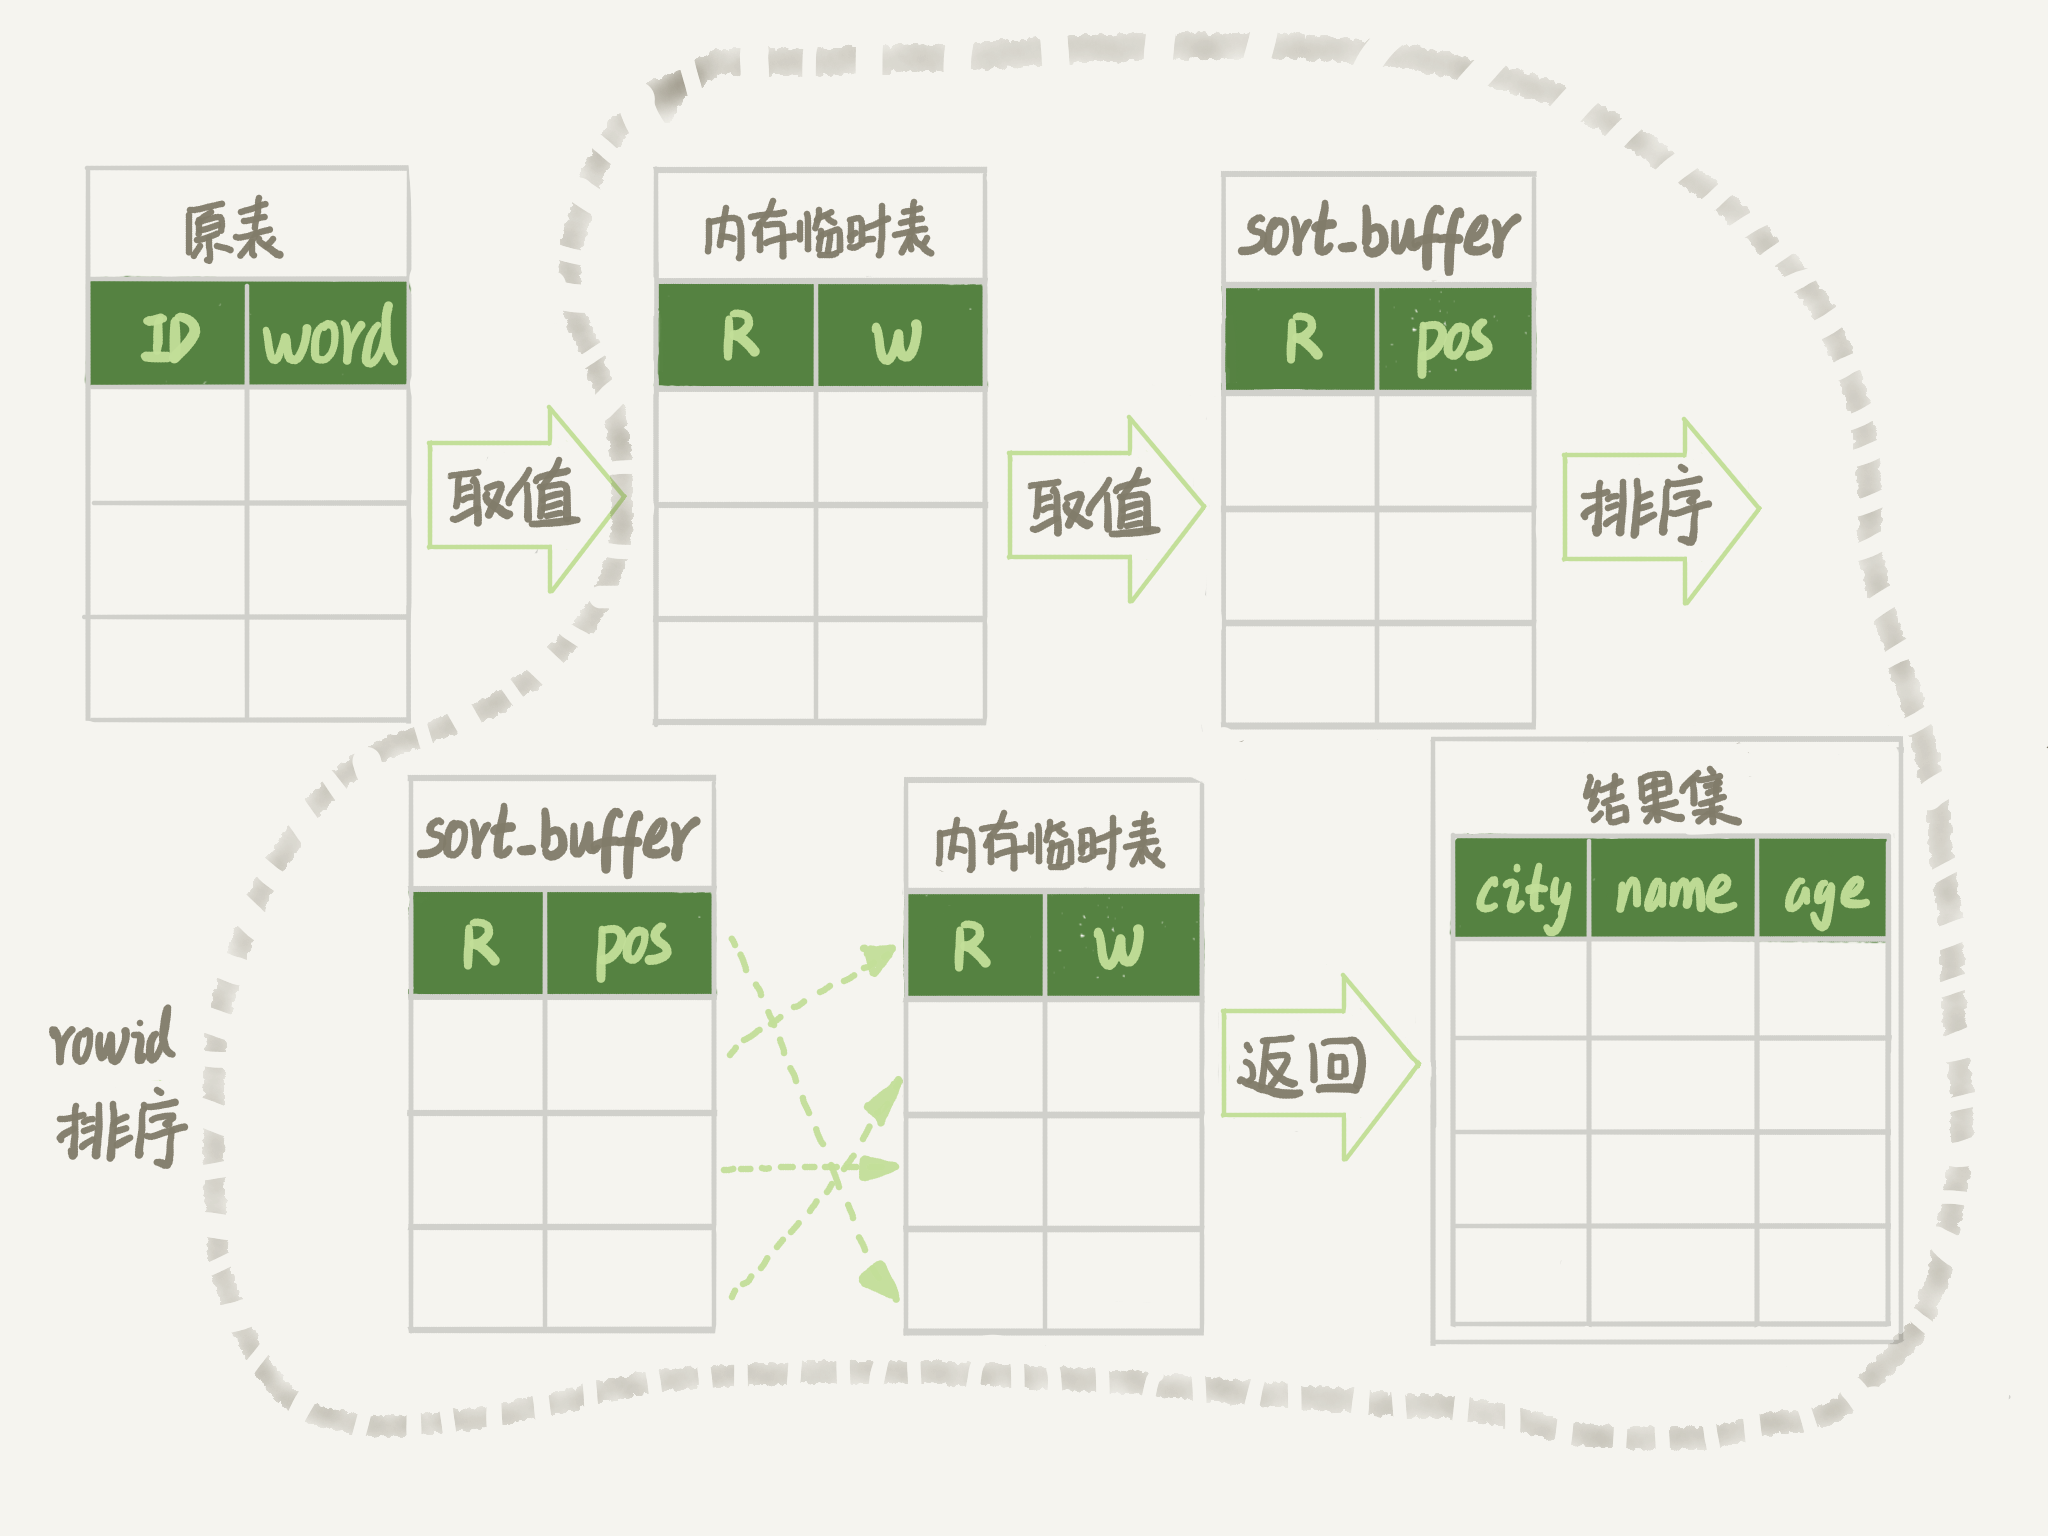 原表
ID word
取值
内存临时表
R W
取值
sort_buffer
R pos
排序
sort_buffer
R pos
内存临时表
R W
返回
结果集
city name age
rowid
排序